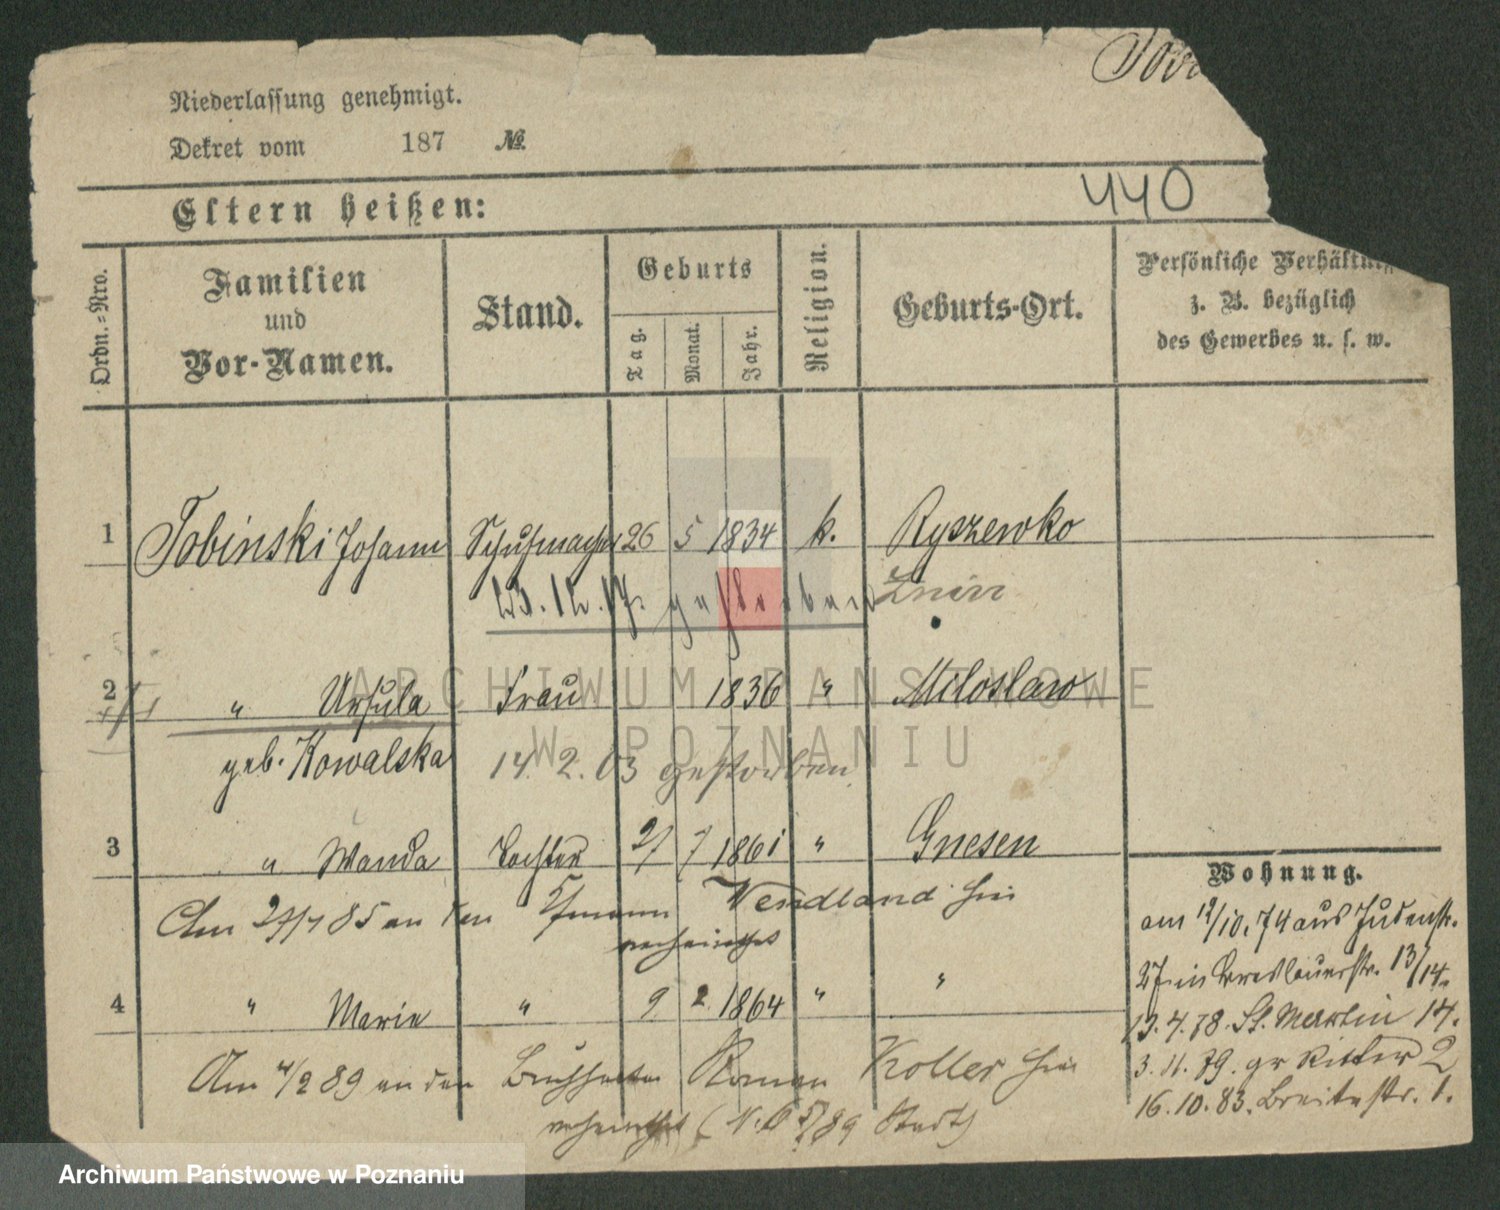 Niederlassung genehmigt.
Dekret vom 187 №
440
Eltern heißen:
Ordn.-Nro.
Familien und Vor-Namen.
Stand.
Geburts
Tag. Monat. Jahr.
Religion.
Geburts-Ort.
Persönliche
z. B. bezüglich
des Gewerbes u. s. w.
1 Tobinski Johann Schuhmacher 26 5 1834 k. Ryszewko
23.12.17. gestorben Znin
2 " Ursula Frau 1836 " Miloslaw
geb. Kowalska 14. 2. 03 gestorben
3 " Wanda Tochter 27 7 1861 " Gnesen
Am 27/7 85 an den Wendland hier
verheirathet
4 " Marie " 9 2. 1864 " "
Am 4/2 89 an den Buchhalter Roman Koller hier
verheirathet Stadt)
Wohnung.
am 12/10. 74 aus Judenstr.
27 in Breslauerstr. 13/14.
13. 4. 78. St. Martin 14.
3. 11. 79. gr Ritter 2
16. 10. 83. Breitestr. 1.
ARCHIWUM PAŃSTWOWE
W POZNANIU
Archiwum Państwowe w Poznaniu